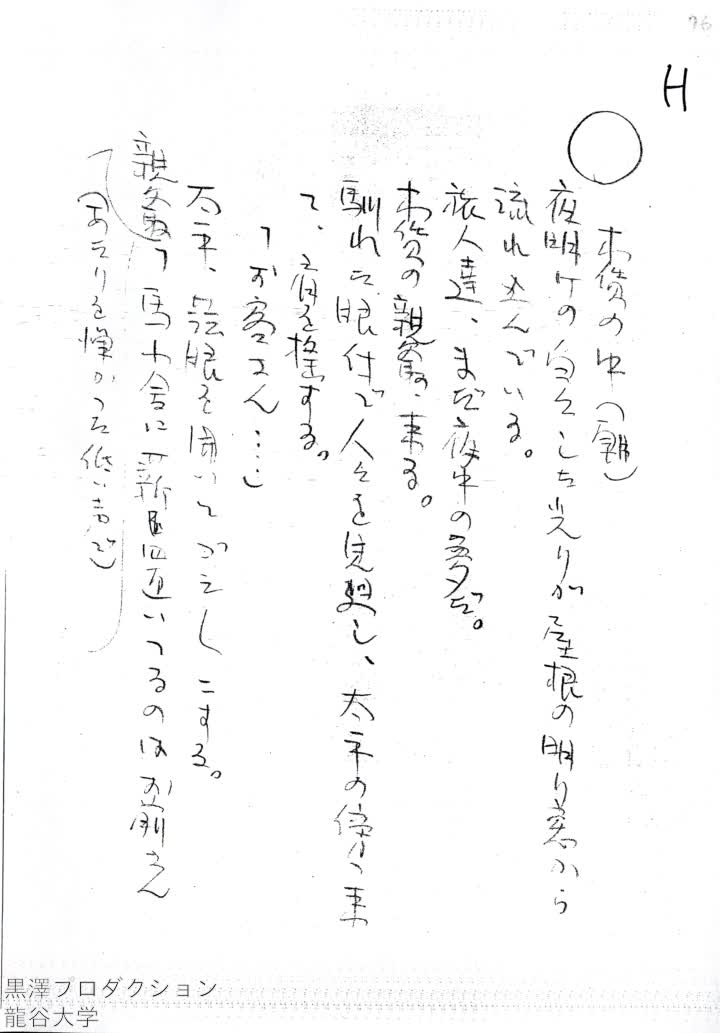 76
H
木賃の中(朝)
夜明けの白々した光りが屋根の明り窓から
流れ込んでいる。
旅人達、まだ夜中の夢だ。
木賃の親爺、来る。
馴れた眼付で人々を見廻し、太平の傍へ来
て、肩を揺する。
「お客さん…」
太平、眼を開いてびっくりする。
親爺「馬小舎に新馬四疋いるのはお前さん
(あたりを憚かつた低い声で)
黒澤プロダクション
龍谷大学